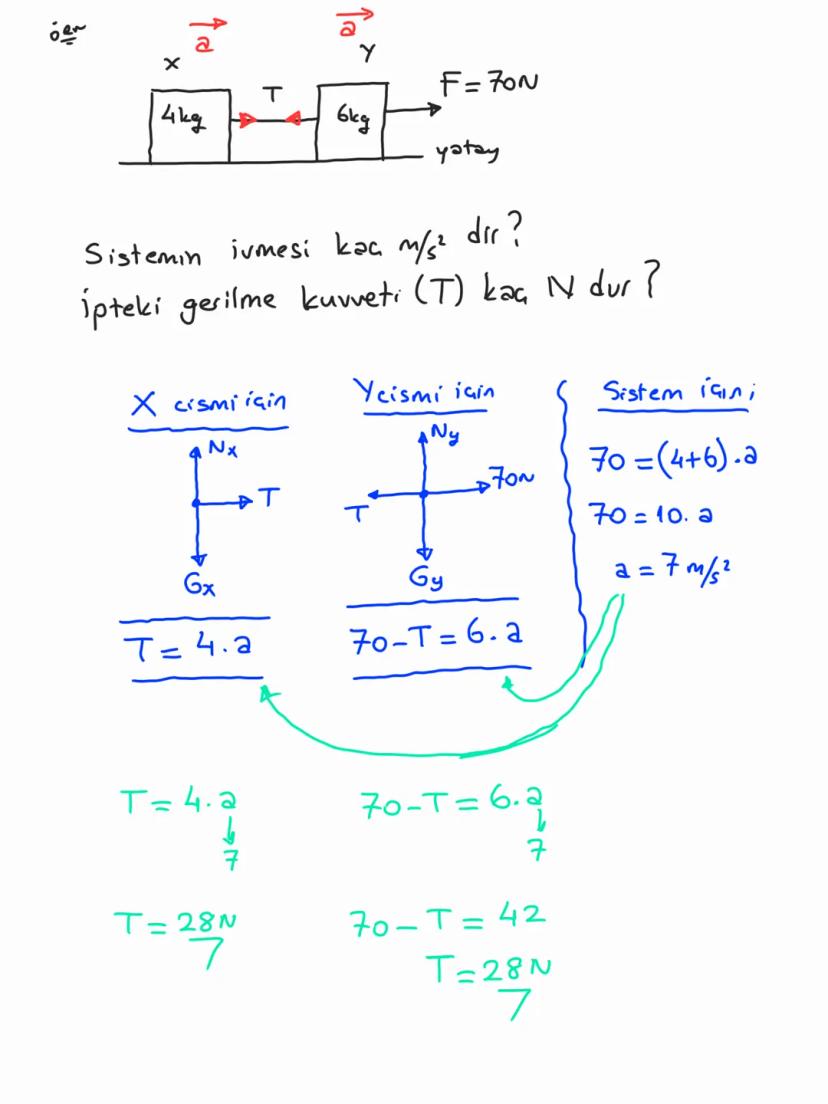 örn
a
a
X
Y
4kg
T
6kg
F=70N
yatay
Sistemin ivmesi kaç m/s² dir?
İpteki gerilme kuvveti (T) kaç N dur?
X cismi için
Nx
T
Gx
T = 4.a
Y cismi için
Ny
70N
T
Gy
70-T = 6.a
Sistem için;
70 = (4+6).a
70 = 10.a
a = 7 m/s²
T = 4.a
7
T = 28N
70-T = 6.a
7
70-T = 42
T = 28N